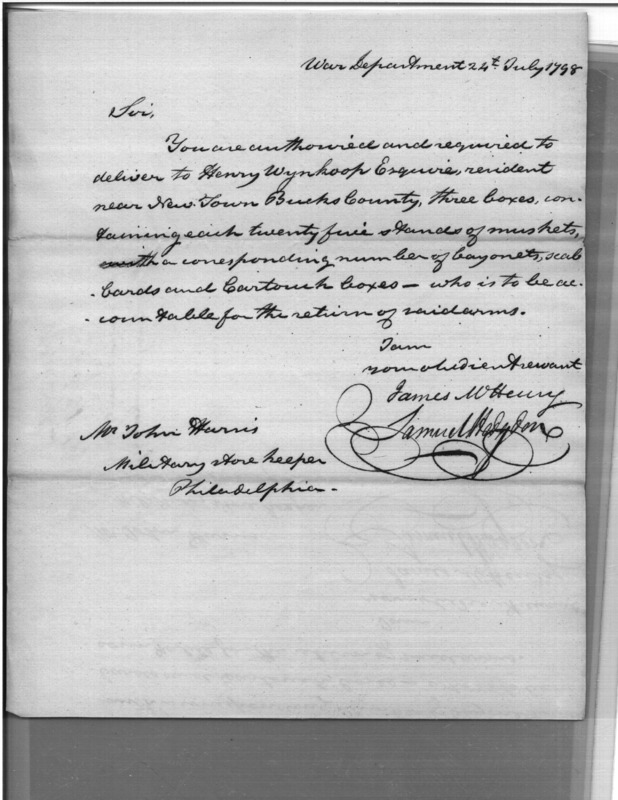 War Department 24th July 1798
Sir,
You are authorised and required to
deliver to Henry Wynkoop Esquire, resident
near New Town Bucks County, three boxes, con-
taining each twenty five stands of muskets,
with a corresponding number of bayonets, scab
-bards and Cartouch boxes — who is to be ac-
-countable for the return of said arms.
I am
your obedient servant
James McHenry
Samuel Hodgdon
Mr John Harris
Military store keeper
Philadelphia.